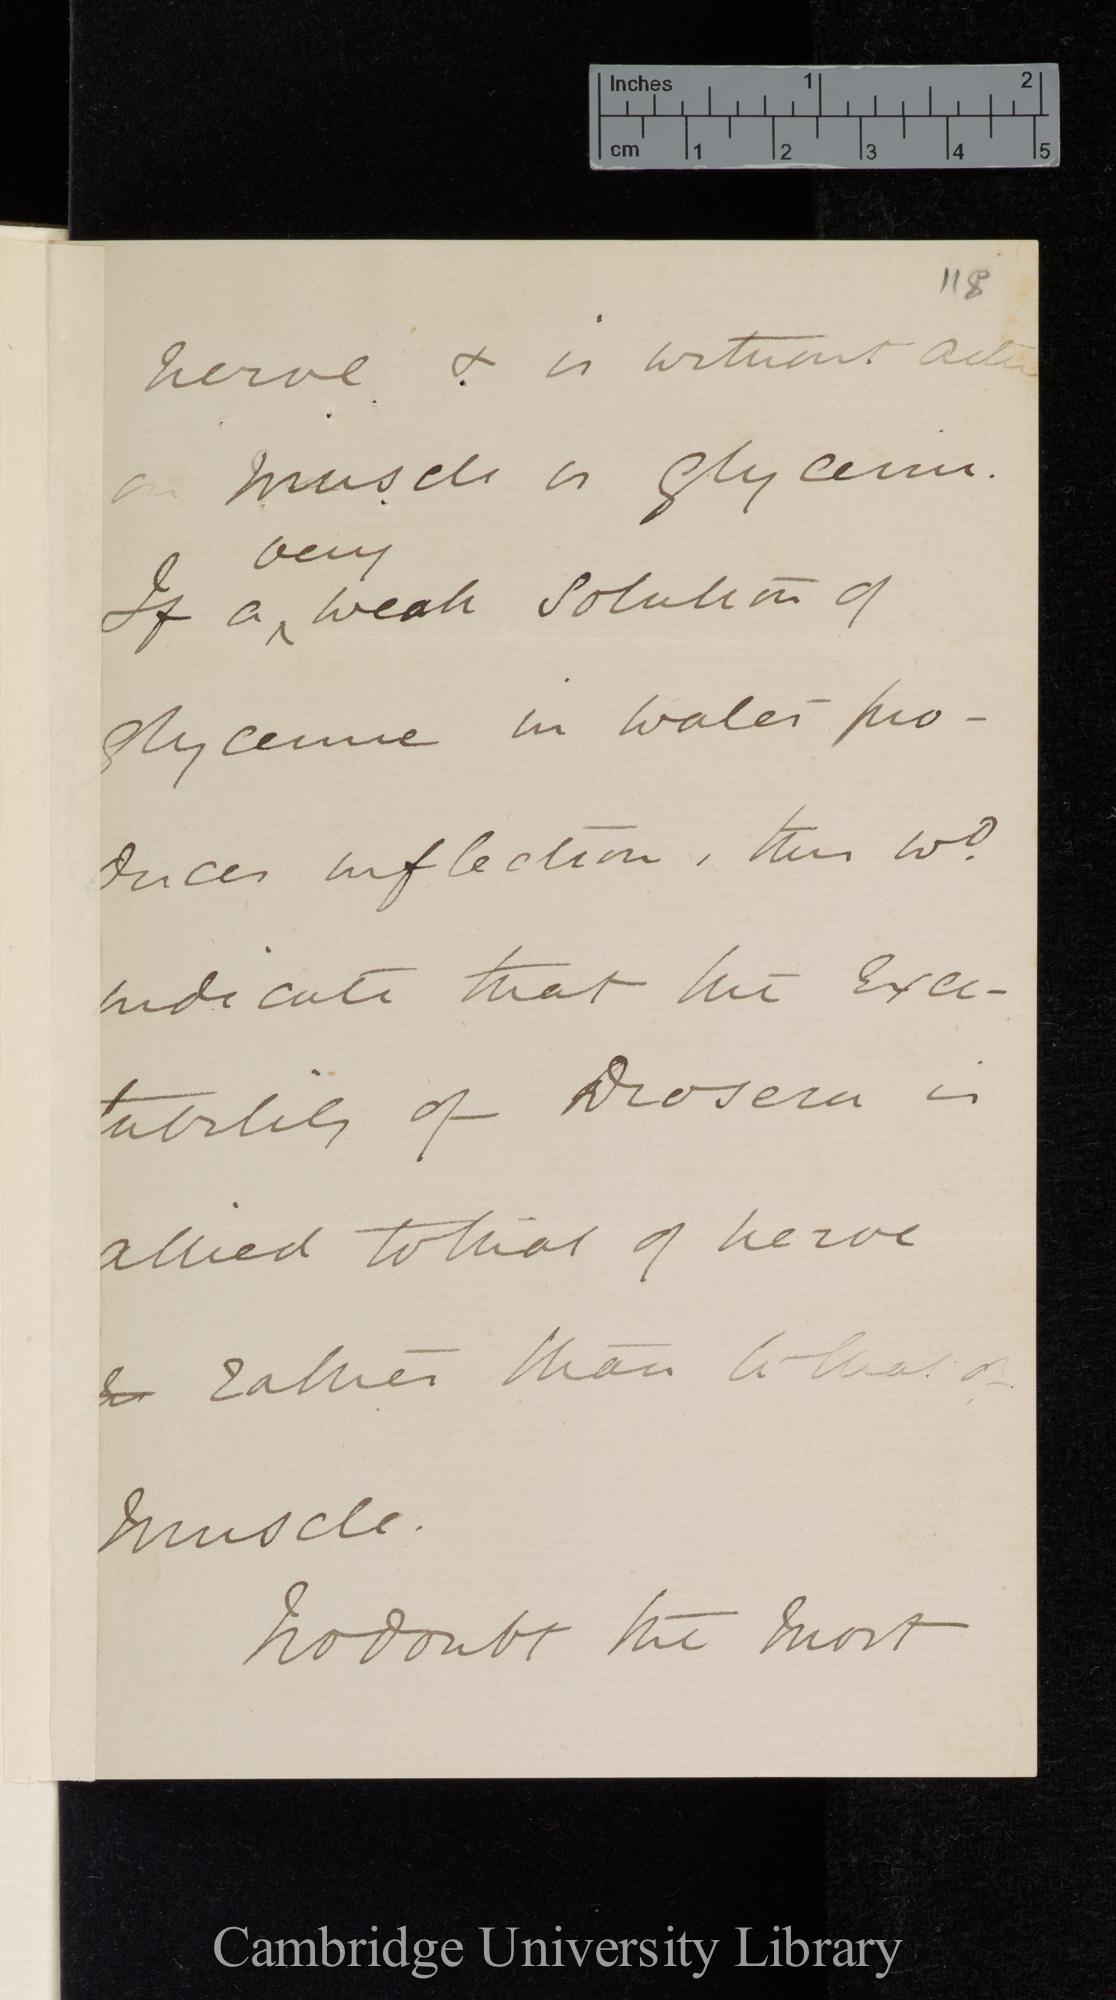 Inches 1 2
cm 1 2 3 4 5
118
nerve & is without actn
on muscle is glycerin.
very
If a ‸ weak solution of
glycerine in water pro-
duces inflection, this wd.
indicate that the exci-
tability of Drosera is
allied to that of nerve
rather than to that of
muscle.
No doubt the most
Cambridge University Library